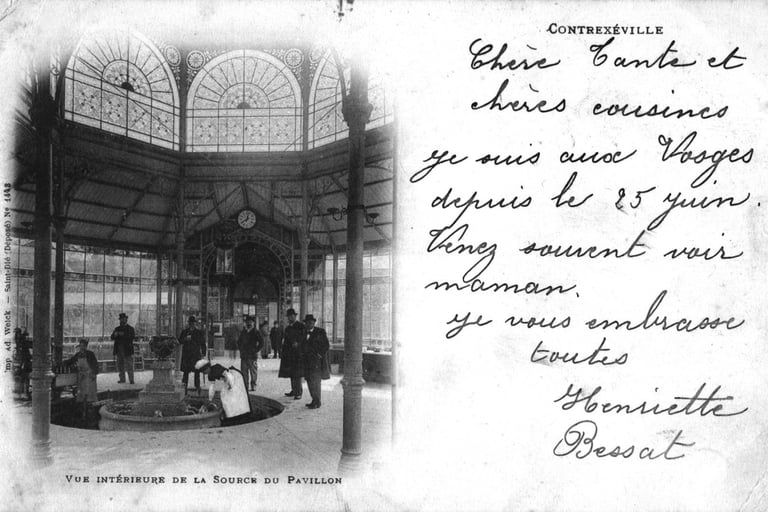 CONTREXÉVILLE
Chère Tante et
chères cousines
je suis aux Vosges
depuis le 25 juin.
Venez souvent voir
maman.
je vous embrasse
toutes
Henriette
Bessat
Imp. Ad. Weick — Saint-Dié (Déposé) No 1443
VUE INTÉRIEURE DE LA SOURCE DU PAVILLON